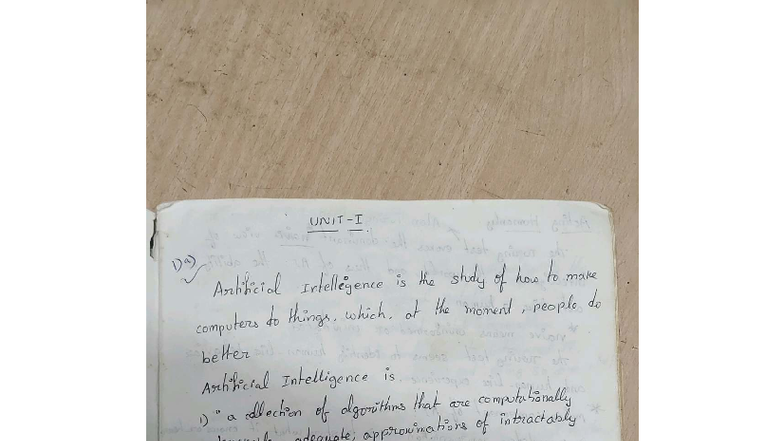 UNIT-I
1)a)
Artificial Intelligence is the study of how to make
computers do things, which, at the moment, people do
better
Artificial Intelligence is
1) " a collection of algorithms that are computationally
adequate, approximations of intractably